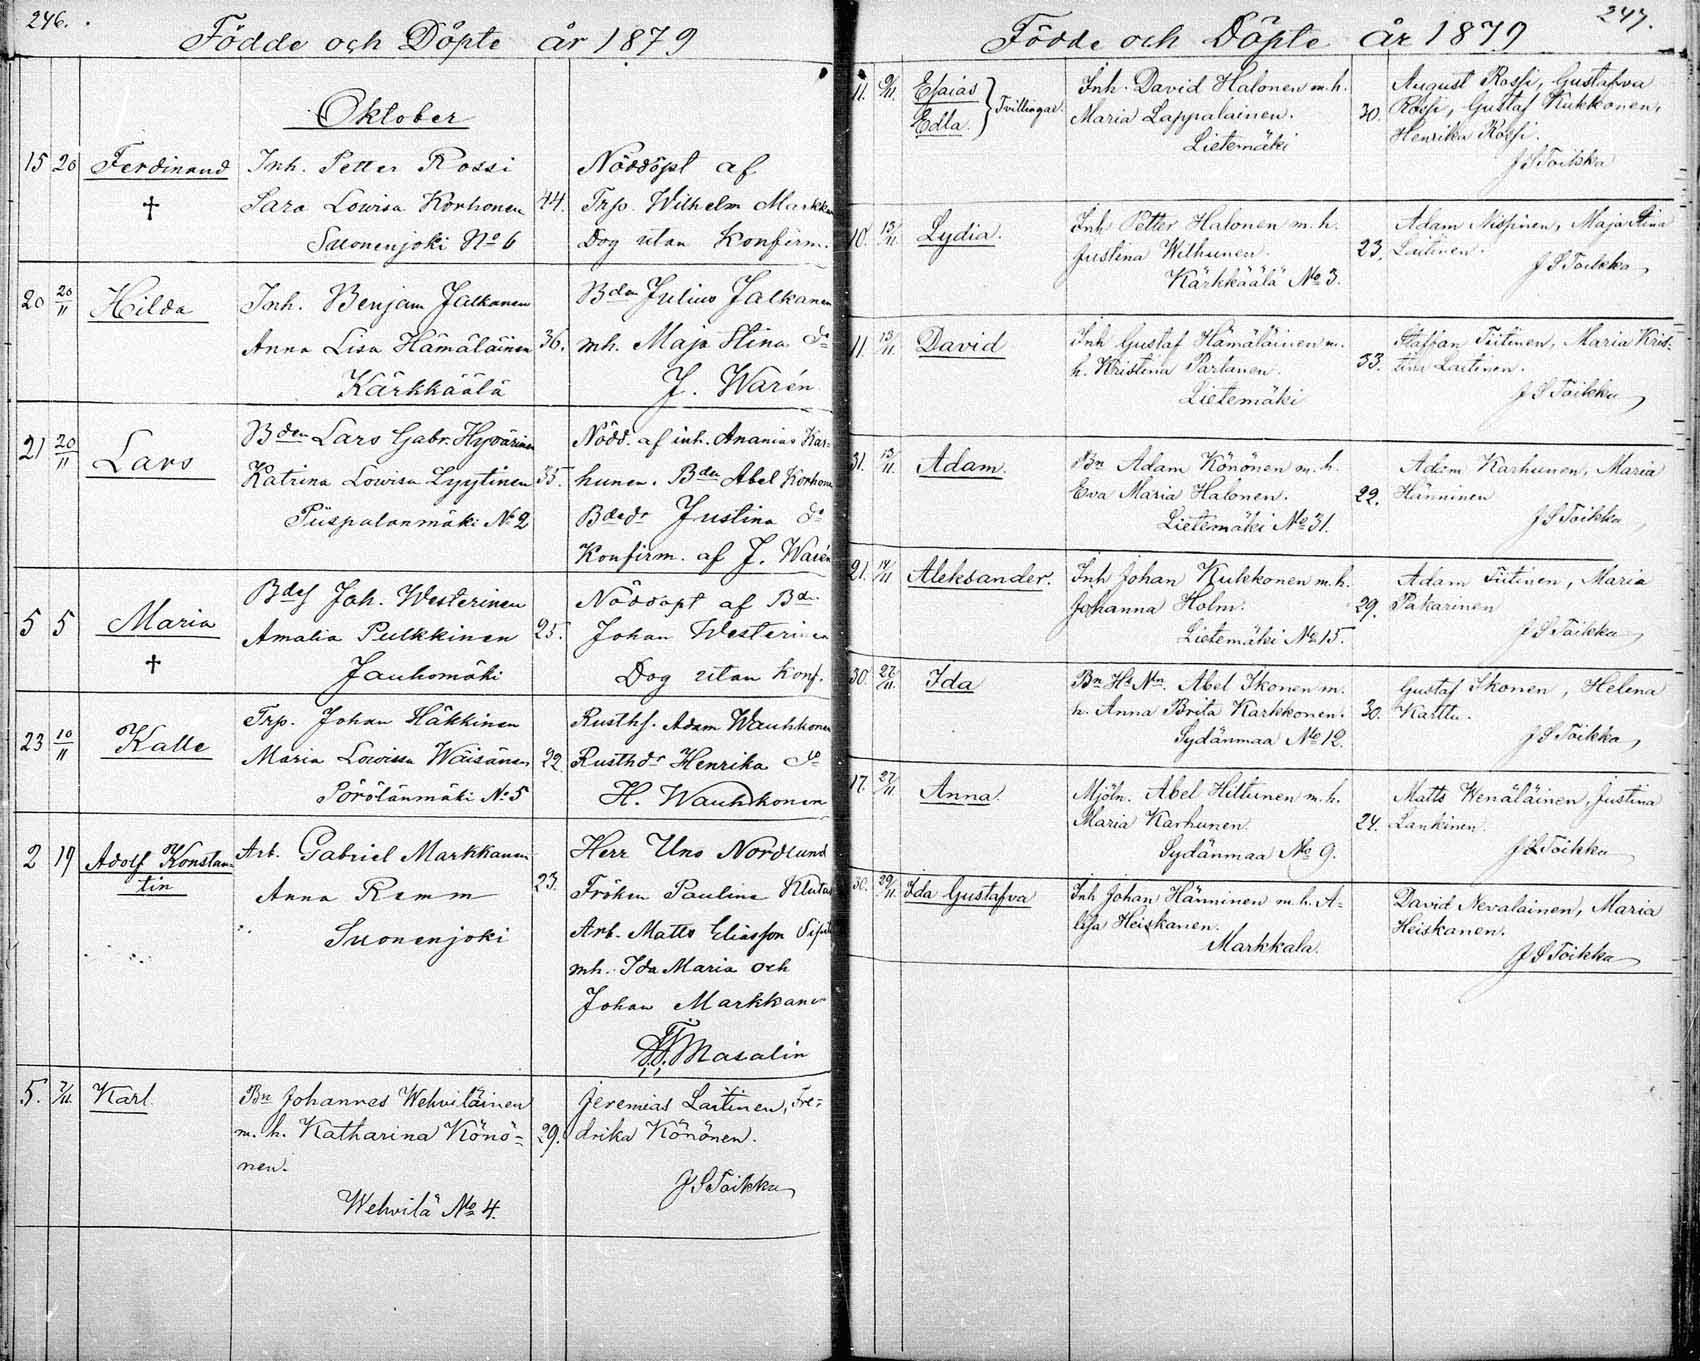 246.
Födde och Döpte år 1879
Oktober
15 20 Ferdinand Inh. Petter Rossi Nöddöpt af
† Sara Lowisa Korhonen 44. Trp. Wilhelm Markka
Suonenjoki No 6 Dog utan Konfirm.
20 20/11 Hilda Inh. Benjam Jalkanen Bdn Julius Jalkanen
Anna Lisa Hämäläinen 36. mh. Maja Stina do
Kärkkäälä J. Warén
21 20/11 Lars Bden Lars Gabr. Hyvärinen Nödd. af inh. Ananias Kar-
Katrina Lowisa Lyytinen 35. hunen. Bden Abel Korhone
Piispalanmäki No 2 Justina do
Konfirm. af J. Warén
5 5 Maria Joh. Westerinen Nöddöpt af Bd.
† Amalia Pulkkinen 25. Johan Westerinen
Jauhomäki Dog utan konf.
23 10/11 Kalle Trp. Johan Häkkinen Rusthf. Adam Wauhkonen
Maria Lowisa Wäisänen 22. Henrika do
Pörölänmäki No 5 H. Wauhkonen
2 19 Adolf Konstan- Arb. Gabriel Markkanen Herr Uno Nordlund
tin Anna Remm 23. Fröken Paulina
Suonenjoki Arb. Matts Eliasson
mh. Ida Maria och
Johan Markkanen
Masalin
5. 7/11. Karl Bn Johannes Wehviläinen Jeremias Laitinen, Fre-
m. h. Katharina Könö- 29. drika Könönen.
nen.
J S Toikka
Wehvilä No 4.
247.
Födde och Döpte år 1879
11. 9/11. Esaias Tvillingar. Inh. David Halonen m. h. August Rossi, Gustafva
Edla. Maria Lappalainen. 30. Rossi, Gustaf Kukkonen,
Lietemäki Henrika Rossi.
J S Toikka
10. 13/11. Lydia. Inh Petter Halonen m. h. Adam Nissinen, Maja Stina
Justina Wilhunen. 23. Laitinen.
Kärkkäälä No 3. J S Toikka
11. 13/11. David Inh Gustaf Hämäläinen m. Staffan Tiitinen, Maria Kris-
h. Kristina Partanen. 33. tina Laitinen.
Lietemäki J S Toikka
31. 13/11. Adam. Bn Adam Könönen m. h. Adam Karhunen, Maria
Eva Maria Halonen. 22. Hänninen
Lietemäki No 31. J S Toikka
21. 14/11. Aleksander. Inh Johan Kukkonen m. h. Adam Tiitinen, Maria
Johanna Holm. 29. Pakarinen
Lietemäki No 15. J S Toikka
30. 27/11. Ida Bn Hs Nn. Abel Ikonen m. Gustaf Ikonen, Helena
h. Anna Brita Karkkonen. 30. Karttu.
Sydänmaa No 12. J S Toikka
17. 27/11. Anna. Mjöln. Abel Hiltunen m. h. Matts Wenäläinen, Justina
Maria Karhunen. 24. Lankinen.
Sydänmaa No 9. J S Toikka
30. 29/11. Ida Gustafva Inh Johan Hänninen m. h. A- David Nevalainen, Maria
lisa Heiskanen. Heiskanen.
Markkala. J S Toikka